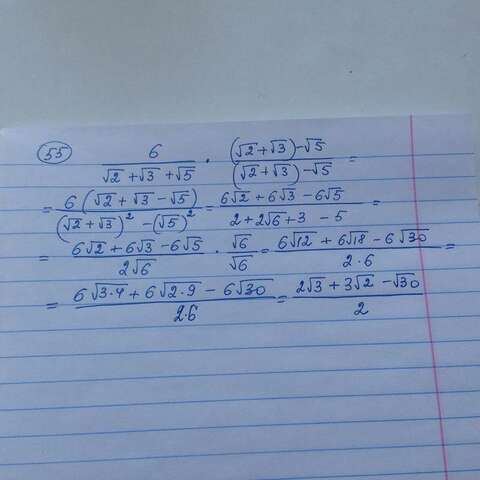 55 6/(√2 + √3 + √5) · ((√2 + √3) - √5)/((√2 + √3) - √5) =
= 6(√2 + √3 - √5)/((√2 + √3)² - (√5)²) = (6√2 + 6√3 - 6√5)/(2 + 2√6 + 3 - 5) =
= (6√2 + 6√3 - 6√5)/(2√6) · √6/√6 = (6√12 + 6√18 - 6√30)/(2·6) =
= (6√3·4 + 6√2·9 - 6√30)/(2·6) = (2√3 + 3√2 - √30)/2